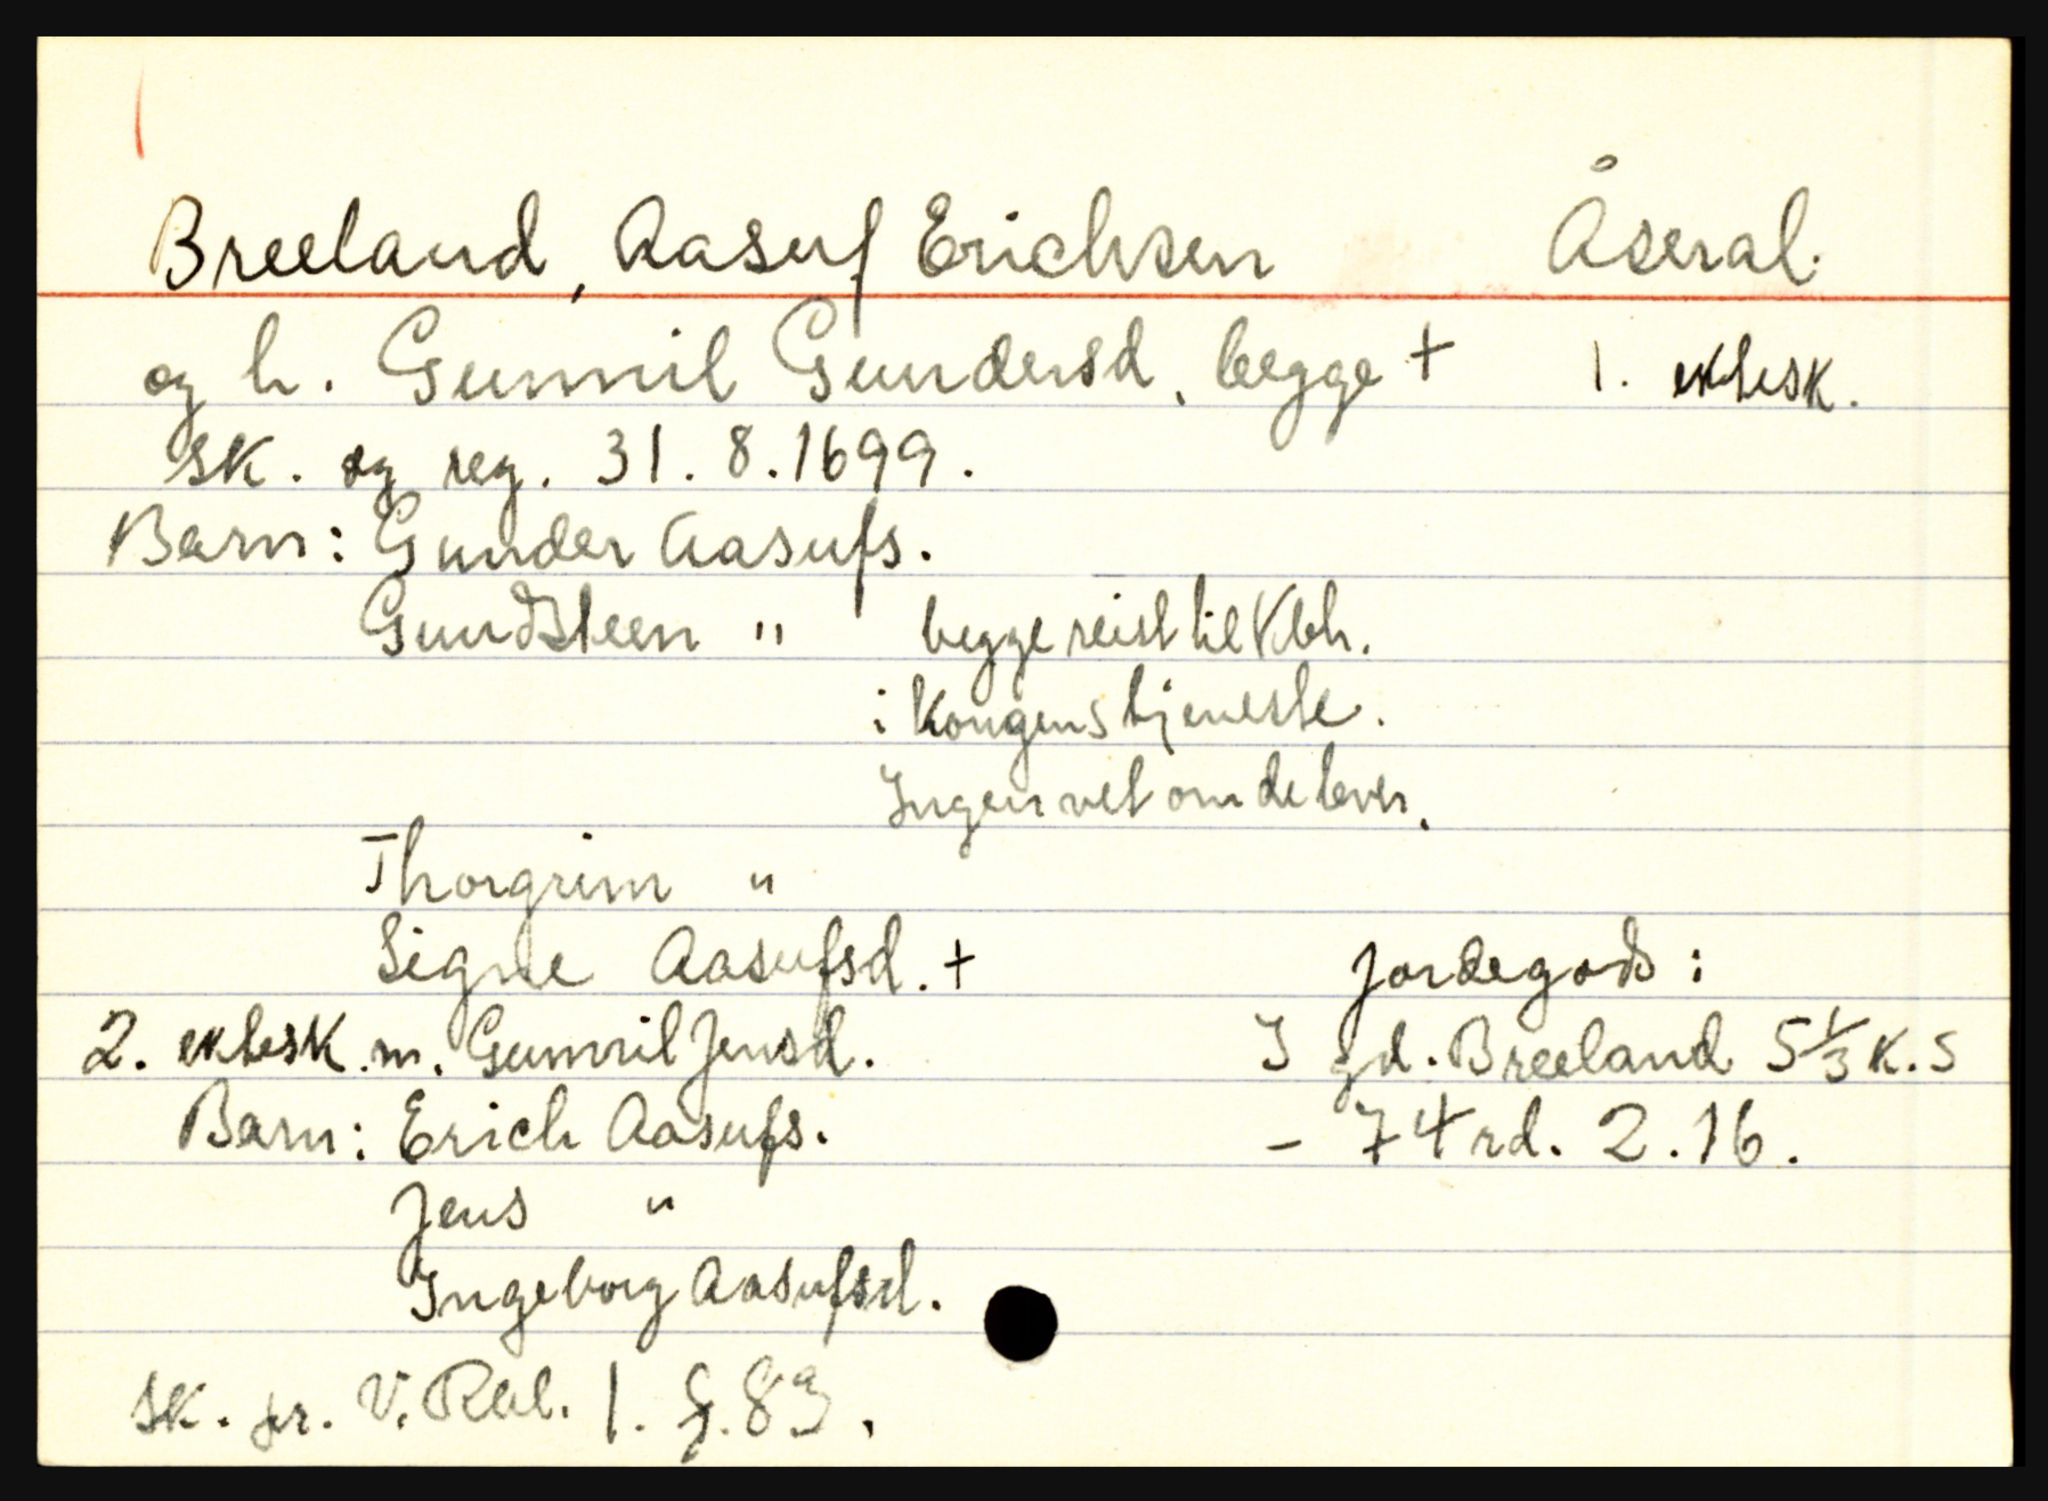 Breeland, Aasuf Erichsen Åseral.
og h. Gunnil Gundersd. begge + 1. ektesk.
SK. og reg. 31. 8. 1699.
Barn: Gunder Aasufs.
Gundsteen " begge reist til Kbh.
i Kongens tjeneste.
Ingen vet om de lever.
Thorgrim "
Signe Aasufsd. +
Jordegods:
2. ektesk. m. Gunnil Jensd.
I gd. Breeland 5 1/3 K. S
Barn: Erich Aasufs.
- 74 rd. 2. 16.
Jens "
Ingeborg Aasufsd.
SK. pr. V. Rbl. 1. f. 83.